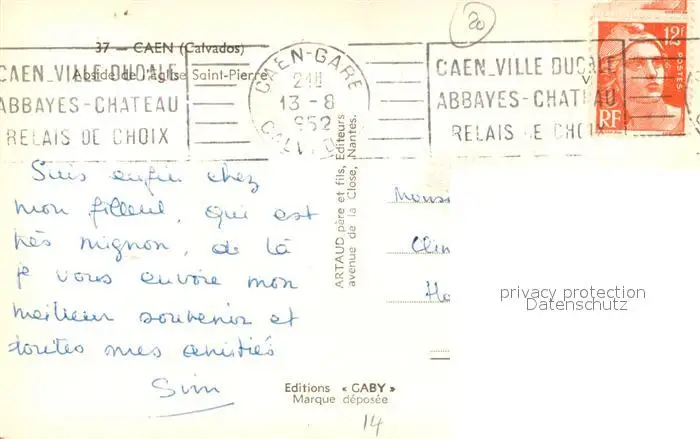 20
37 — CAEN (Calvados)
Abside de l'église Saint-Pierre
CAEN_VILLE DUCALE
ABBAYES-CHATEAU
RELAIS DE CHOIX
CAEN-GARE
13-8
1952
CALVADOS
CAEN_VILLE DUCALE
ABBAYES-CHATEAU
RELAIS DE CHOIX
12F
POSTES
RF
Suis enfin chez
mon filleul, qui est
très mignon, de là
je vous envoie mon
meilleur souvenir et
toutes mes amitiés
ARTAUD père et fils, Éditeurs
avenue de la Close, Nantes.
Monsi
Clin
Ho
privacy protection
Datenschutz
Editions « GABY »
Marque déposée
14